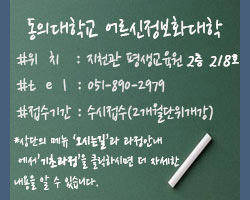 동의대학교 어르신정보화대학
#위 치 : 지천관 평생교육원 2층 218호
#t e l : 051-890-2979
#접수기간 : 수시접수(2개월단위개강)
*상단의 메뉴 '오시는길'과 과정안내
에서 '기초과정'을 클릭하시면 더 자세한
내용을 알 수 있습니다.